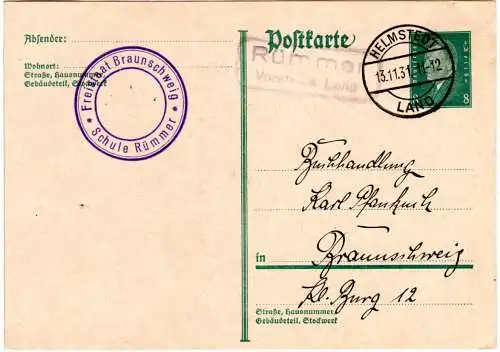 Absender:
Wohnort:
Straße, Hausnummer,
Gebäudeteil, Stockwerk
Freistaat Braunschweig
* Schule Rümmer *
Postkarte
Rümmer
Land
HELMSTEDT
13.11.31
LAND
8
Buchhandlung
Karl Pfankuch
in Braunschweig
Kl. Burg 12
Straße, Hausnummer,
Gebäudeteil, Stockwerk